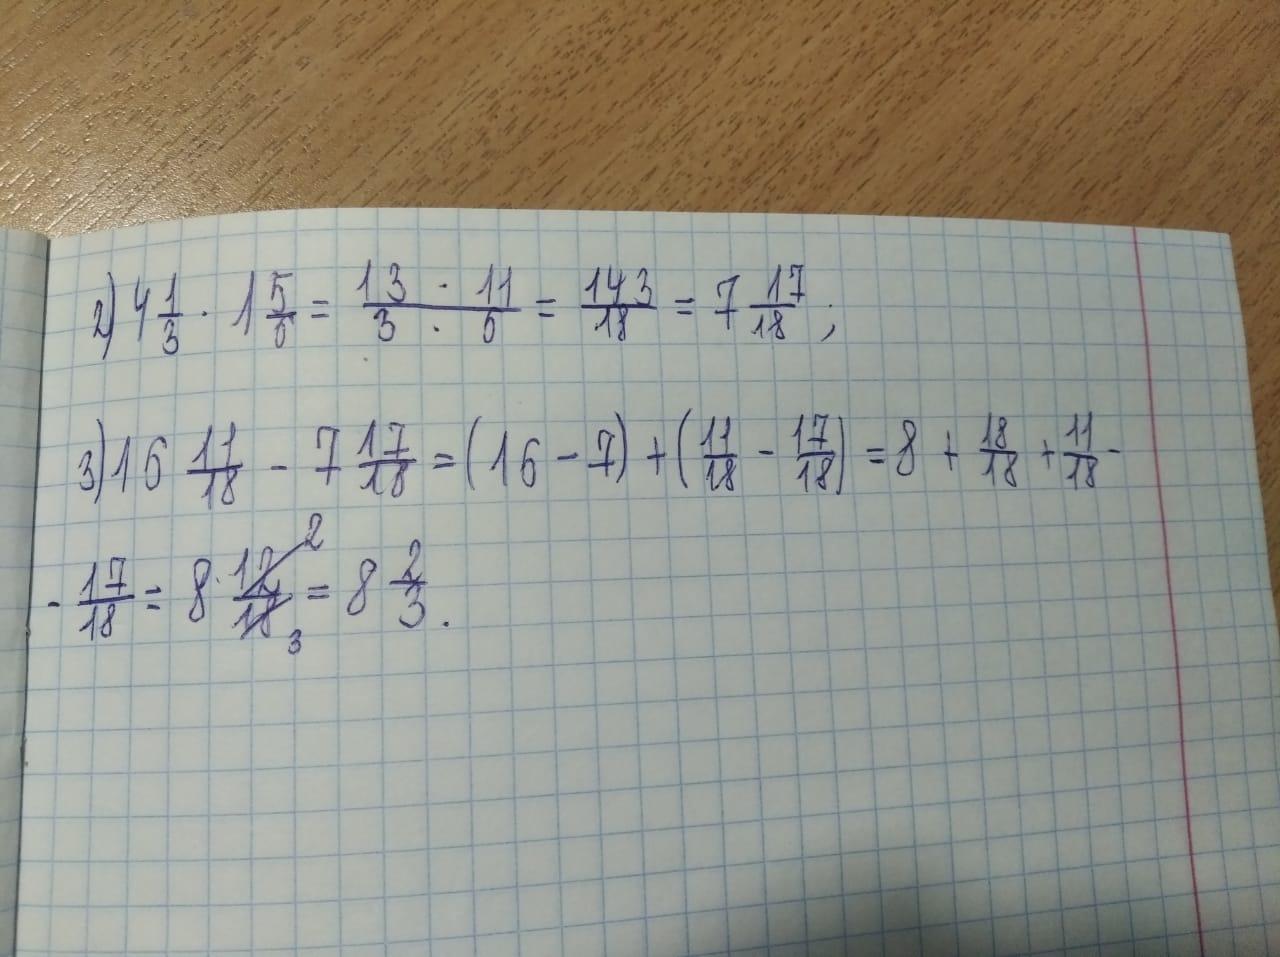 2) 4 1/3 · 1 5/6 = 13 · 11 / 3 · 6 = 143/18 = 7 17/18 ;
3) 16 11/18 - 7 17/18 = (16 - 7) + (11/18 - 17/18) = 8 + 18/18 + 11/18 -
- 17/18 = 8 12/18 2 3 = 8 2/3 .